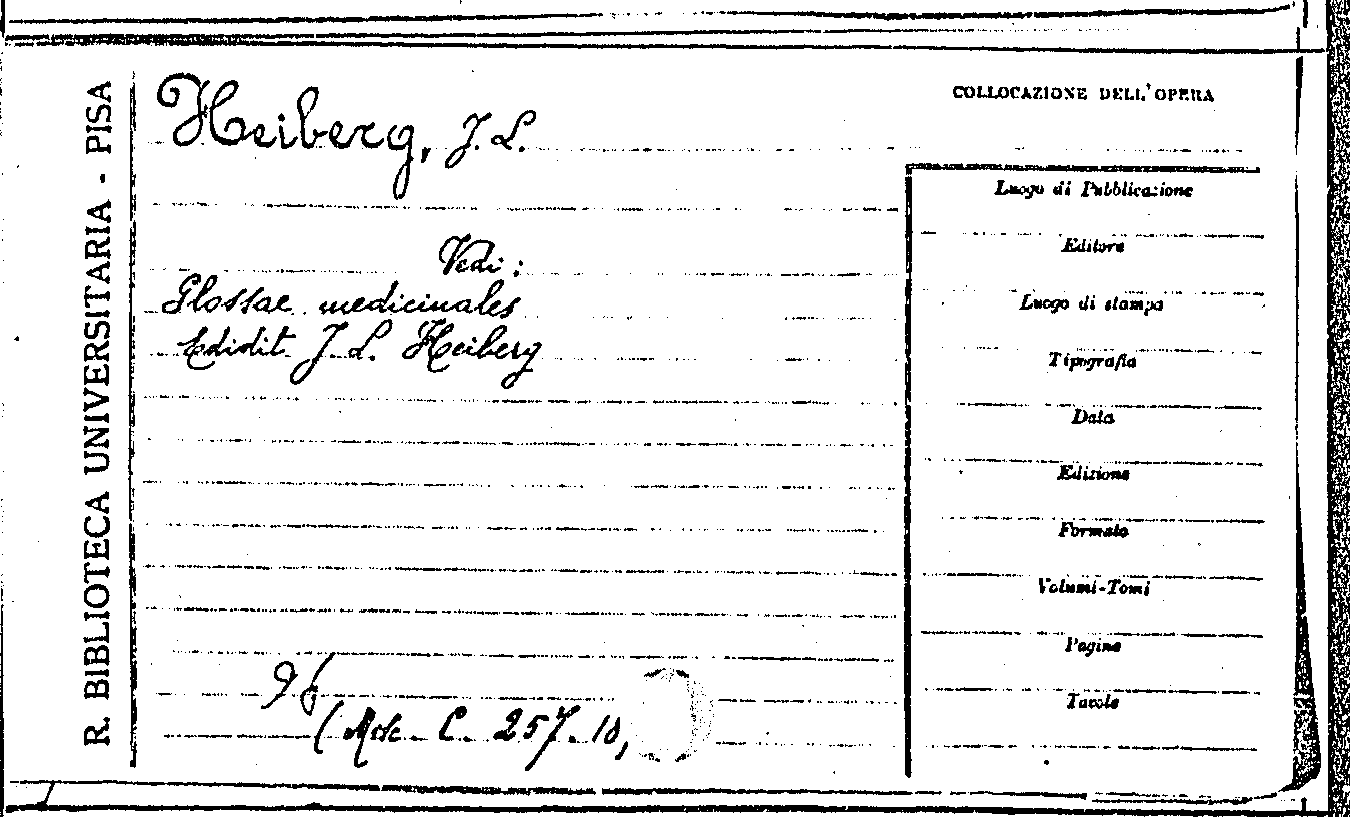 R. BIBLIOTECA UNIVERSITARIA - PISA
Heiberg, J. L.
Vedi:
Glossae medicinales
Edidit J. L. Heiberg
(Misc. C. 257. 10,
COLLOCAZIONE DELL'OPERA
Luogo di Pubblicazione
Editore
Luogo di stampa
Tipografia
Data
Edizione
Formato
Volumi-Tomi
Pagine
Tavole